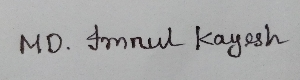 MD. Imnul Kayesh